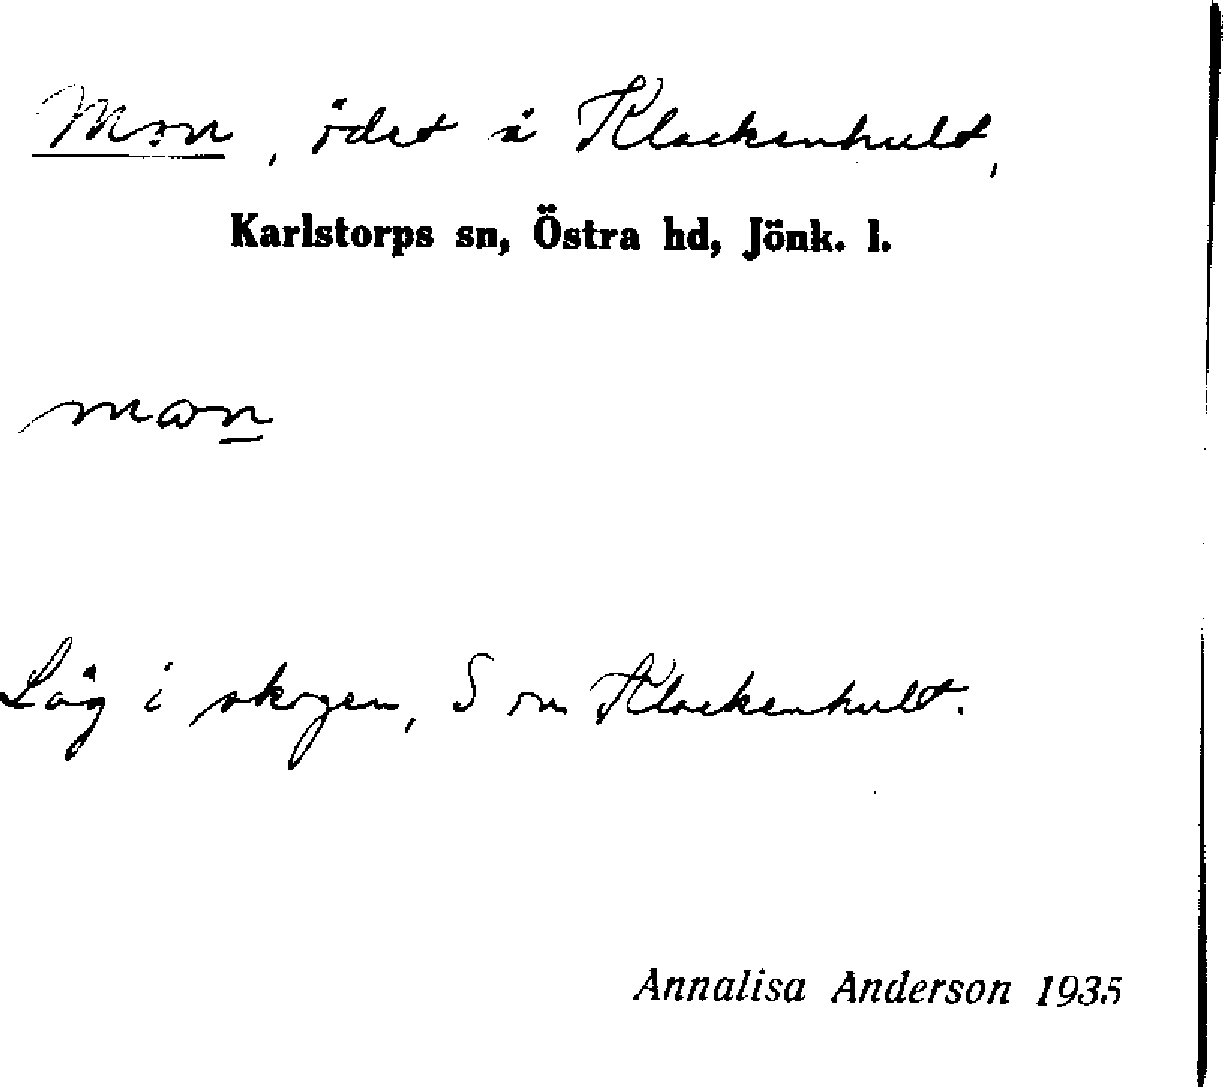 Mon, ödet å Klockenhult,
Karlstorps sn, Östra hd, Jönk. l.
Låg i skogen, S om Klockenhult.
Annalisa Anderson 1935